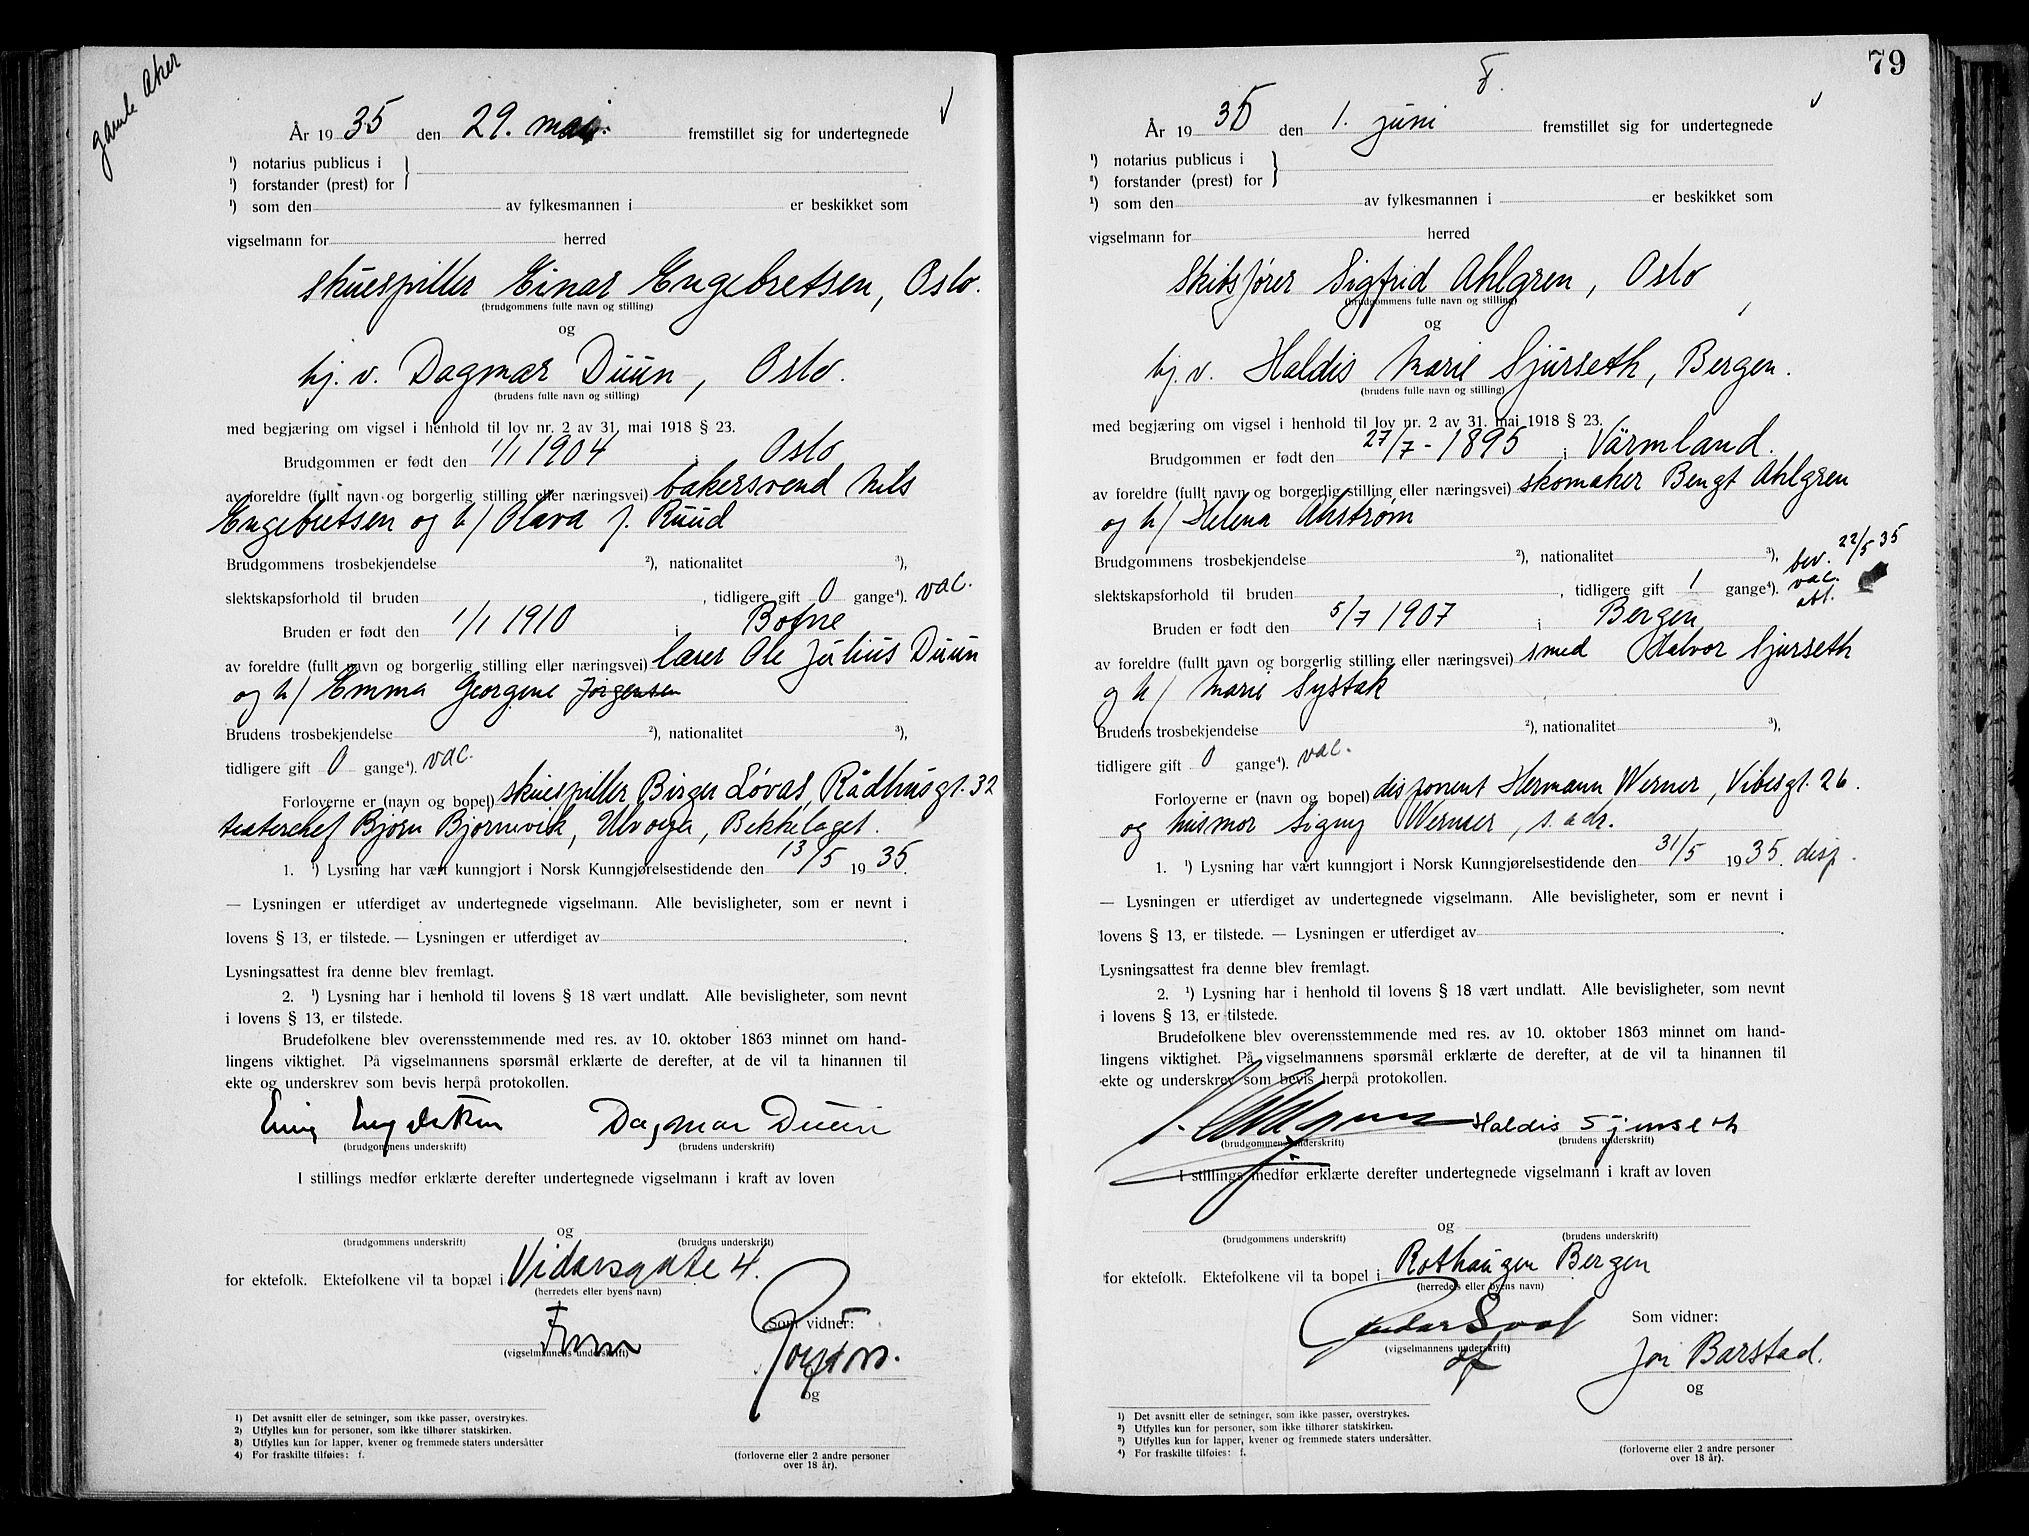 gamle Aker
År 1935 den 29. mai. fremstillet sig for undertegnede
¹) notarius publicus i
¹) forstander (prest) for
¹) som den av fylkesmannen i er beskikket som
vigselmann for herred
skuespiller Einar Engebretsen, Oslo.
(brudgommens fulle navn og stilling)
og
hj. v. Dagmar Duun, Oslo.
(brudens fulle navn og stilling)
med begjæring om vigsel i henhold til lov nr. 2 av 31. mai 1918 § 23.
Brudgommen er født den 1/1 1904 i Oslo
av foreldre (fullt navn og borgerlig stilling eller næringsvei) bakersvend Nils
Engebretsen og h/ Olava f. Ruud
Brudgommens trosbekjendelse ²), nationalitet ³),
slektskapsforhold til bruden , tidligere gift 0 gange⁴). vac.
Bruden er født den 1/1 1910 i Botne
av foreldre (fullt navn og borgerlig stilling eller næringsvei) lærer Ole Julius Duun
og h/ Emma Georgene Jørgensen
Brudens trosbekjendelse ²), nationalitet ³),
tidligere gift 0 gange⁴). vac.
Forloverne er (navn og bopel) skuespiller Birger Løvås, Rådhusgt. 32
teaterchef Bjørn Bjørnevik, Ulvøya, Bekkelaget.
1. ¹) Lysning har vært kunngjort i Norsk Kunngjørelsestidende den 13/5 1935.
— Lysningen er utferdiget av undertegnede vigselmann. Alle bevisligheter, som er nevnt i
lovens § 13, er tilstede. — Lysningen er utferdiget av .
Lysningsattest fra denne blev fremlagt.
2. ¹) Lysning har i henhold til lovens § 18 vært undlatt. Alle bevisligheter, som nevnt
i lovens § 13, er tilstede.
Brudefolkene blev overensstemmende med res. av 10. oktober 1863 minnet om hand-
lingens viktighet. På vigselmannens spørsmål erklærte de derefter, at de vil ta hinannen til
ekte og underskrev som bevis herpå protokollen.
Dagmar Duun
(brudgommens underskrift) (brudens underskrift)
I stillings medfør erklærte derefter undertegnede vigselmann i kraft av loven
og
(brudgommens underskrift) (brudens underskrift)
for ektefolk. Ektefolkene vil ta bopæl i Vidarsgate 4.
(herredets eller byens navn)
Som vidner:
(vigselmannens underskrift)
og
1) Det avsnitt eller de setninger, som ikke passer, overstrykes.
2) Utfylles kun for personer, som ikke tilhører statskirken.
3) Utfylles kun for lapper, kvener og fremmede staters undersåtter
4) For fraskilte tilføies: f.
(forloverne eller 2 andre personer
over 18 år).
79
År 1935 den 1. juni fremstillet sig for undertegnede
¹) notarius publicus i
²) forstander (prest) for
¹) som den av fylkesmannen i er beskikket som
vigselmann for herred
Skibsfører Sigfrid Ahlgren, Oslo
(brudgommens fulle navn og stilling)
og
hj. v. Haldis Marie Sjurseth, Bergen.
(brudens fulle navn og stilling)
med begjæring om vigsel i henhold til lov nr. 2 av 31. mai 1918 § 23.
Brudgommen er født den 27/7 - 1895 i Värmland.
av foreldre (fullt navn og borgerlig stilling eller næringsvei) skomaker Bengt Ahlgren
og h/ Helena Ahstrøm
Brudgommens trosbekjendelse ²), nationalitet ³), bev. 22/5 35
slektskapsforhold til bruden , tidligere gift 1 gange⁴). vac.
Bruden er født den 5/7 1907 i Bergen
av foreldre (fullt navn og borgerlig stilling eller næringsvei) smed Halvor Sjurseth
og h/ Marie Systak
Brudens trosbekjendelse ²), nationalitet ³),
tidligere gift 0 gange⁴). vac.
Forloverne er (navn og bopel) disponent Hermann Werner, Vibesgt. 26.
og husmor Signy Werner, s. adr.
1. ¹) Lysning har vært kunngjort i Norsk Kunngjørelsestidende den 31/5 1935. disp.
— Lysningen er utferdiget av undertegnede vigselmann. Alle bevisligheter, som er nevnt i
lovens § 13, er tilstede. — Lysningen er utferdiget av .
Lysningsattest fra denne blev fremlagt.
2. ¹) Lysning har i henhold til lovens § 18 vært undlatt. Alle bevisligheter, som nevnt
i lovens § 13, er tilstede.
Brudefolkene blev overensstemmende med res. av 10. oktober 1863 minnet om hand-
lingens viktighet. På vigselmannens spørsmål erklærte de derefter, at de vil ta hinannen til
ekte og underskrev som bevis herpå protokollen.
Haldis Sjurseth
(brudgommens underskrift) (brudens underskrift)
I stillings medfør erklærte derefter undertegnede vigselmann i kraft av loven
og
(brudgommens underskrift) (brudens underskrift)
for ektefolk. Ektefolkene vil ta bopel i Rothaugen Bergen
(herredets eller byens navn)
Som vidner:
(vigselmannens underskrift)
Jon Barstad.
og
1) Det avsnitt eller de setninger, som ikke passer, overstrykes.
2) Utfylles kun for personer, som ikke tilhører statskirken.
3) Utfylles kun for lapper, kvener og fremmede staters undersåtter.
4) For fraskilte tilføies: f.
(forloverne eller 2 andre personer
over 18 år).